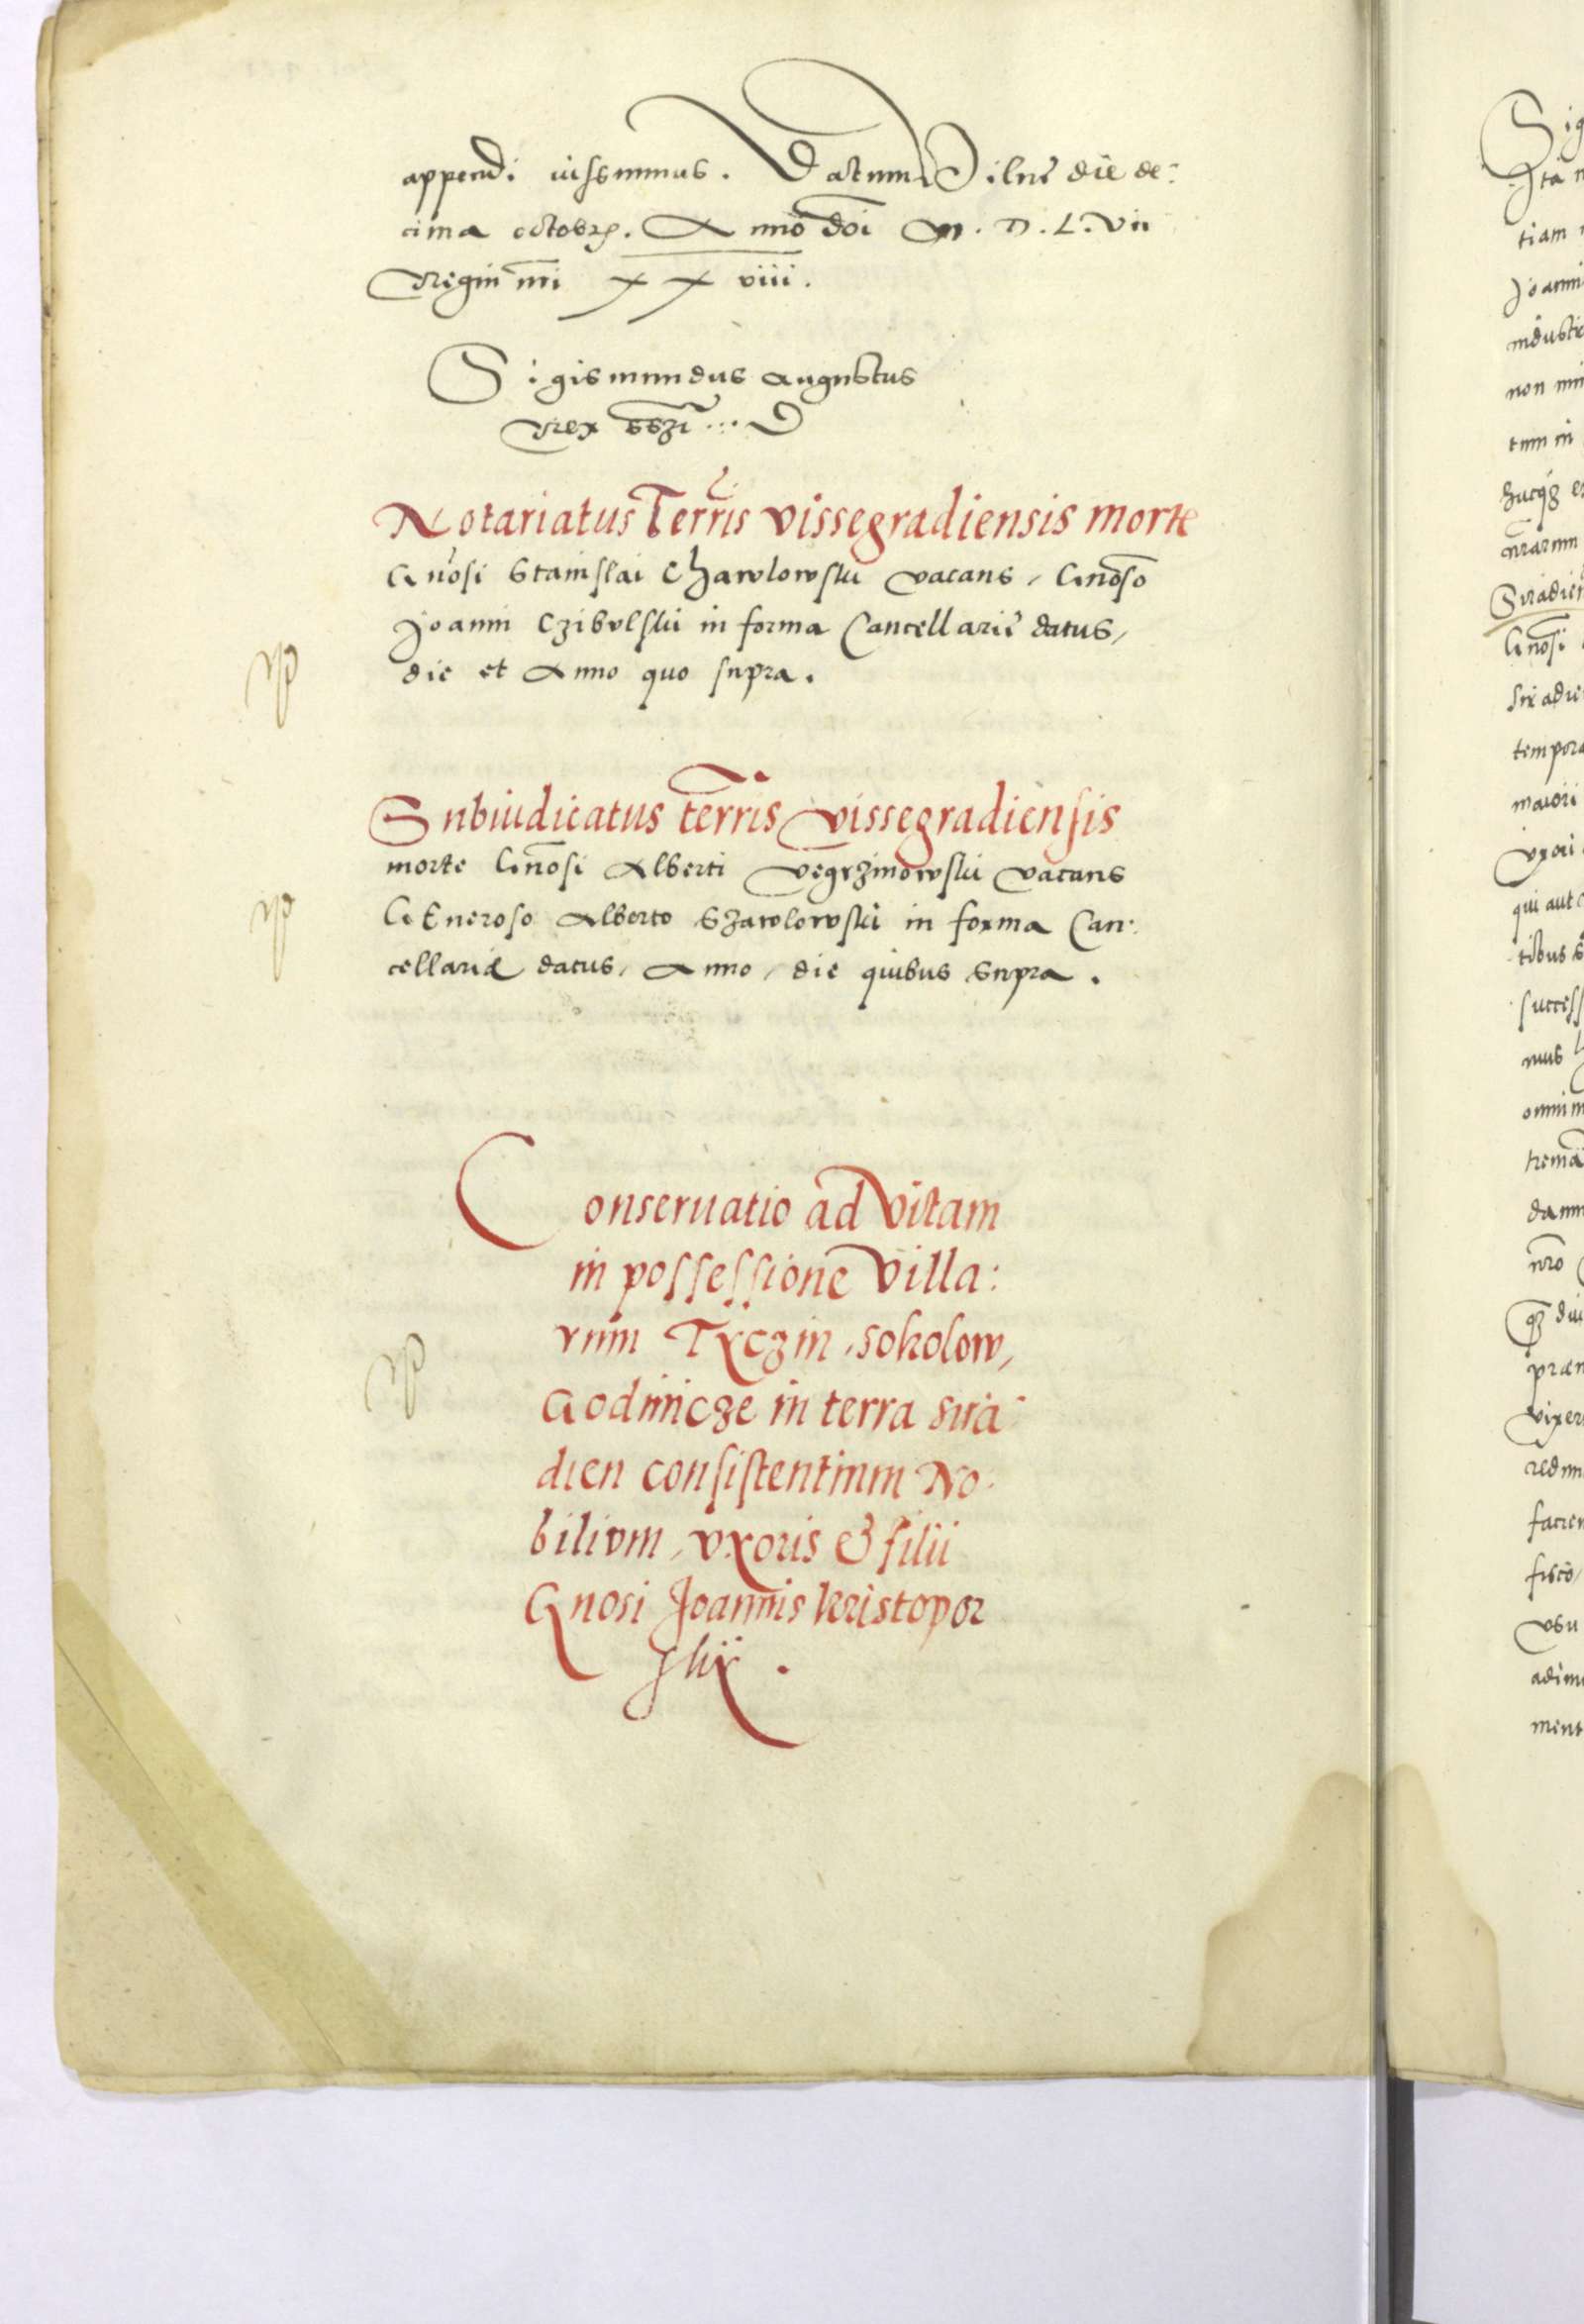 appendi iussimus. Datum Vilne die de:
cima octobrꝭ. Anno doi M. D. L. Vii
Regni nri xx viii.
Sigismundus Augustus
Rex sszt
Notariatus Terris Vissegradiensis morte
Gnosi Stanislai Charvlowskii vacans, Gnoso
Joanni Czibulskii in forma Cancellarie datus,
die et Anno quo supra.
Subiudicatus terris Vissegradiensis
morte Gnosi Alberti Vegrzinowskii vacans
Generoso Alberto Szarvlowskii in forma Can:
cellariæ datus, Anno, die quibus supra.
Conseruatio ad Vitam
in possessione Villa:
rum Txczin, Sokolow,
Godinicze in terra Sira
dien consistentium No
bilium, vxoris & filii
Gnosi Joannis Kristopor
skii.
Sig
Ita n
tiam
Joanni
industr
non mi
tum in
hucqz
nrarum
Siradien
Gnosi
Siradie
tempora
maiori
vxori
qui aut
tibus s
success
mus
omnim
trema
damu
nro
qz diu
præn
vixer
redim
facien
fisco,
vsu
adim
ment